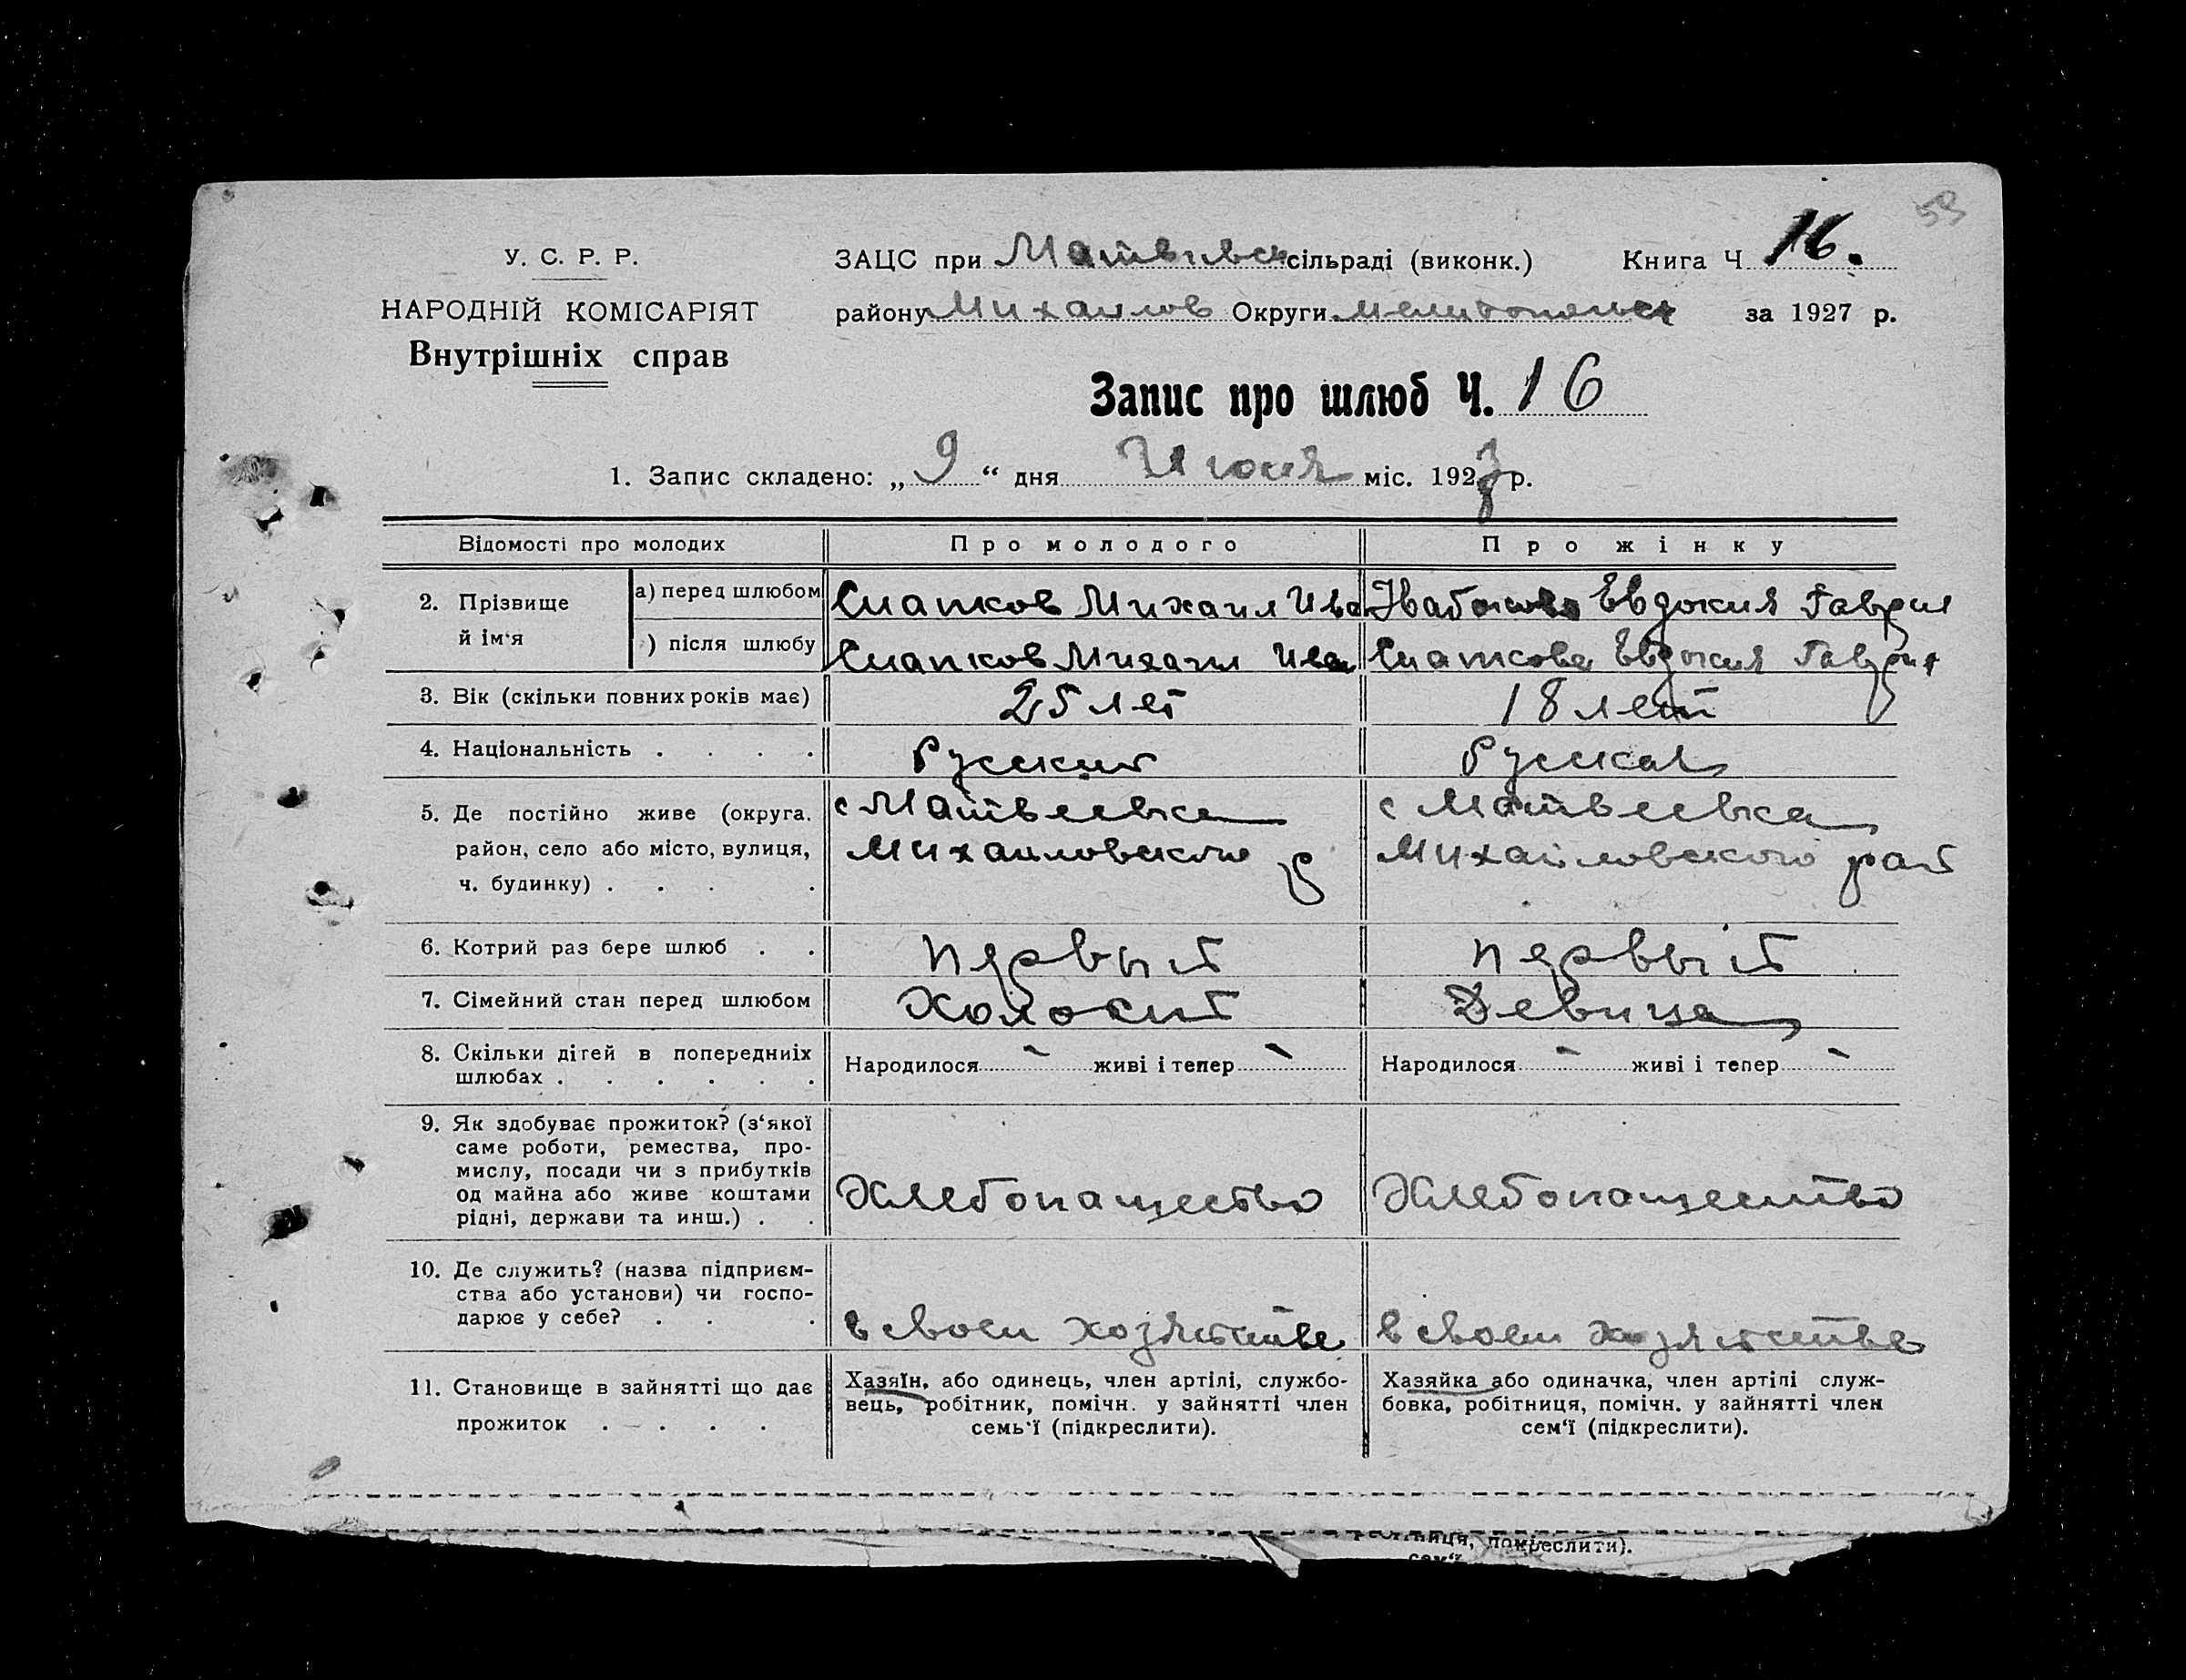 53
У. С. Р. Р.
НАРОДНІЙ КОМІСАРІЯТ
Внутрішніх справ
ЗАЦС при сільраді (виконк.) Книга Ч 16.
району Михайлов Округи Мелитопольск за 1927 р.
Запис про шлюб Ч. 16
1. Запис складено: „ 9 “ дня Июня міс. 1927 р.
Відомості про молодих Про молодого Про жінку
2. Прізвище й ім‘я
а) перед шлюбом Михаил Ива Евдокия Гаврил
) після шлюбу Михаил Иван Евдокия Гаврил
3. Вік (скільки повних років має) 25 лет 18 лет
4. Національність . . . . Русский Русская
5. Де постійно живе (округа, с Матвеевка с Матвеевка
район, село або місто, вулиця, Михайловского р Михайловского рай
ч. будинку) . . . .
6. Котрий раз бере шлюб . . первый первый
7. Сімейний стан перед шлюбом Холостй Девица
8. Скільки дітей в попередниіх Народилося - живі і тепер - Народилося - живі і тепер -
шлюбах . . . . . .
9. Як здобуває прожиток? (з‘якої
саме роботи, ремества, про-
мислу, посади чи з прибутків
од майна або живе коштами Хлебопащество Хлебопащество
рідні, держави та инш.) . .
10. Де служить? (назва підприєм-
ства або установи) чи госпо-
дарює у себе? . . . в своем хозяйстве в своем хозяйстве
11. Становище в зайнятті що дає
прожиток . . . .
Хазяїн, або одинець, член артілі, службо-
вець, робітник, помічн. у зайнятті член
семь‘ї (підкреслити).
Хазяйка або одиначка, член артілі служ-
бовка, робітниця, помічн. у зайнятті член
сем‘ї (підкреслити).